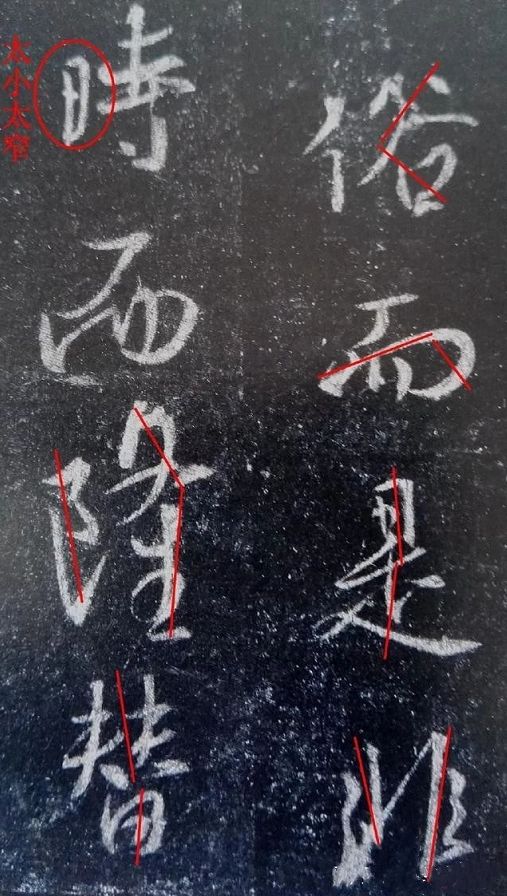 俗而是非
時而隆替
太小太窄